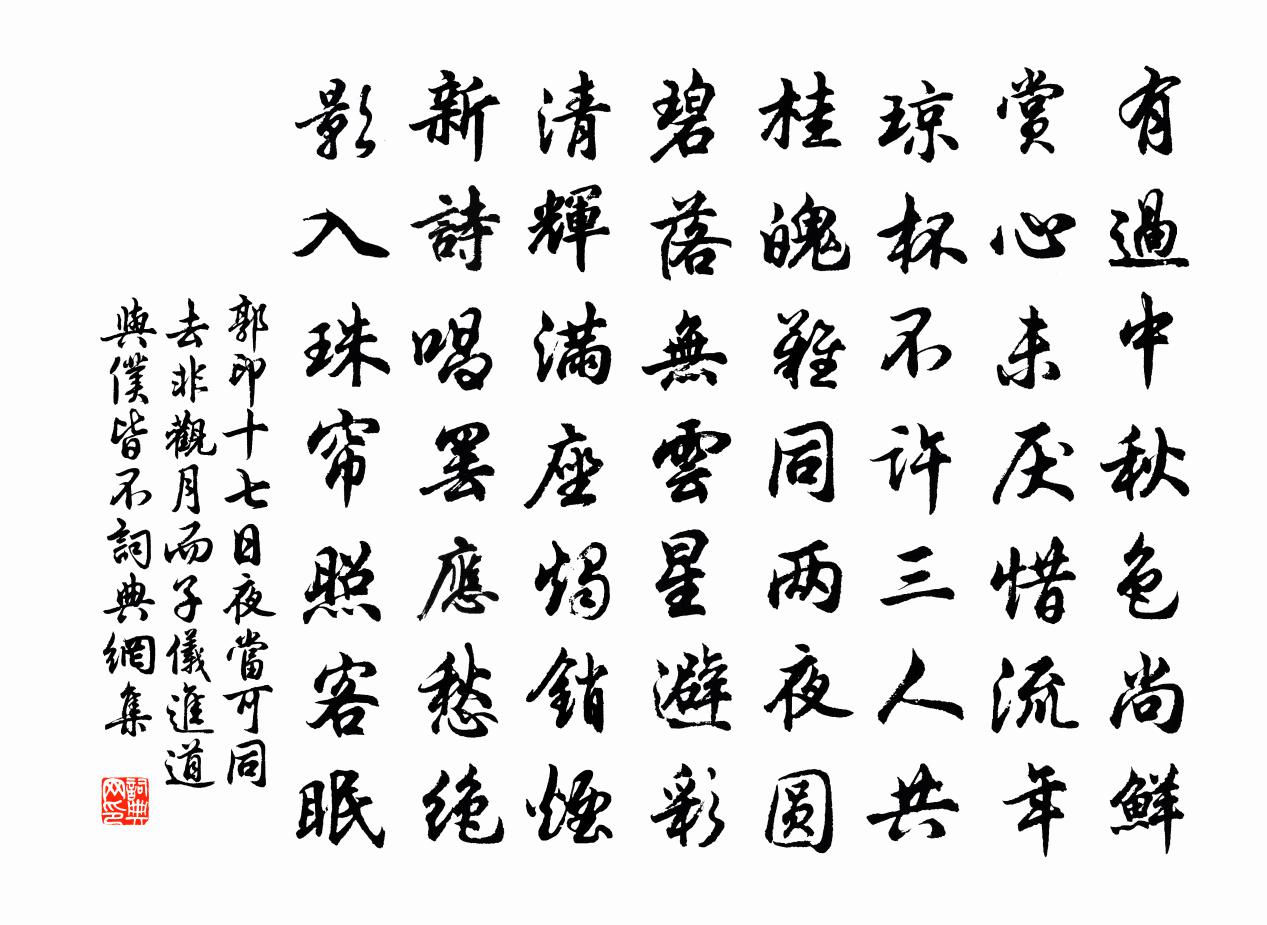 有過中秋色尚鮮
賞心未厌惜流年
琼杯不许三人共
桂魄難同两夜圆
碧落無雲星避彩
清輝满座燭銷煙
新詩唱罢應愁绝
影入珠帘照客眠
郭印十七日夜當可同
去非觀月而子儀進道
與僕皆不詞典網集
詞典网印